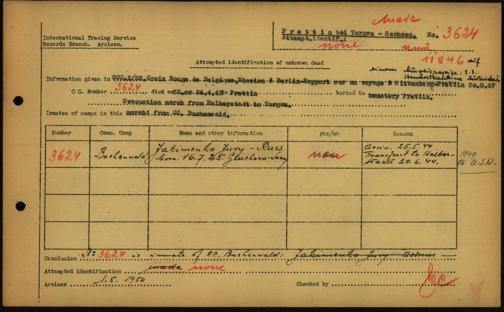 made
Prettin bei Torgau - Sachsen. No. 3624
International Tracing Service
Records Branch. Arolsen.
Attempt. identif.:
none
11846 auf
Attempted identification of unknown dead
Information given in Croix Rouge de Belgique, Mission à Berlin-Rapport sur un voyage à Wittenberg-Prettin
C.C. Number 3624 died on 23. or 24.4.45- Prettin buried in cemetery Prettin
Evacuation march from Halberstadt to Torgau.
Inmates of camps in this march: from CC. Buchenwald.
Number Conc. Camp Name and other information yes/no Reason
3624 Buchenwald Jakimenko Jury - Russ.
born. 16.7.25 none Arriv. 25.5.44
Transport to Halber-
stadt 20.6.44.
No 3624 is inmate of CC. Buchenwald: Jakimenko Jury
Conclusion
Attempted identification made none
Arolsen 1.5.1950 Checked by